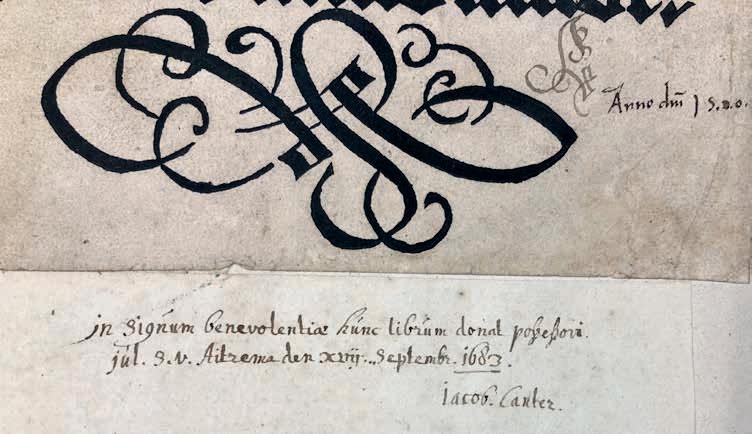 Anno dm̄ 1 5.20.
in Signum benevolentiæ hunc librum donat poßeßori.
Jul. S. v. Aitzema den xvij. Septembr. 1683.
Iacob. Canter.